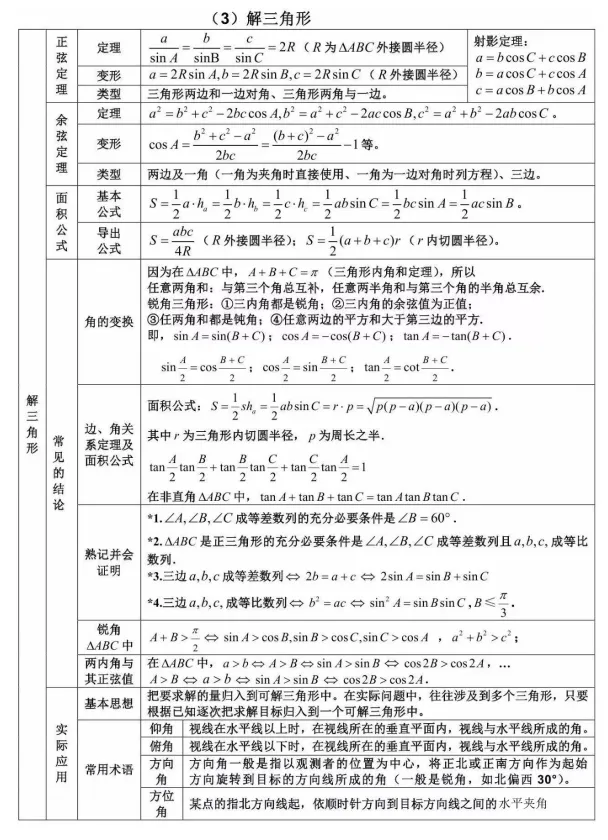 （3）解三角形
解三角形
正弦定理
定理
a/sin A = b/sinB = c/sin C = 2R（R 为 ΔABC 外接圆半径）
变形
a = 2R sin A, b = 2R sin B, c = 2R sin C（R 外接圆半径）
类型
三角形两边和一边对角、三角形两角与一边。
射影定理：
a = b cos C + c cos B
b = a cos C + c cos A
c = a cos B + b cos A
余弦定理
定理
a² = b² + c² − 2bc cos A, b² = a² + c² − 2ac cos B, c² = a² + b² − 2ab cos C 。
变形
cos A = (b² + c² − a²)/2bc = ((b + c)² − a²)/2bc − 1 等。
类型
两边及一角（一角为夹角时直接使用、一角为一边对角时列方程）、三边。
面积公式
基本公式
S = 1/2 a·hₐ = 1/2 b·h_b = 1/2 c·h_c = 1/2 ab sin C = 1/2 bc sin A = 1/2 ac sin B 。
导出公式
S = abc/4R（R 外接圆半径）；S = 1/2 (a + b + c)r（r 内切圆半径）。
常见的结论
角的变换
因为在 ΔABC 中，A + B + C = π（三角形内角和定理），所以
任意两角和：与第三个角总互补，任意两半角和与第三个角的半角总互余.
锐角三角形：①三内角都是锐角；②三内角的余弦值为正值；
③任两角和都是钝角；④任意两边的平方和大于第三边的平方.
即，sin A = sin(B + C)；cos A = −cos(B + C)；tan A = −tan(B + C).
sin A/2 = cos (B+C)/2；cos A/2 = sin (B+C)/2；tan A/2 = cot (B+C)/2.
边、角关系定理及面积公式
面积公式：S = 1/2 shₐ = 1/2 ab sin C = r·p = √(p(p − a)(p − a)(p − a)).
其中 r 为三角形内切圆半径，p 为周长之半.
tan A/2 tan B/2 + tan B/2 tan C/2 + tan C/2 tan A/2 = 1
在非直角 ΔABC 中，tan A + tan B + tan C = tan A tan B tan C .
熟记并会证明
*1.∠A,∠B,∠C 成等差数列的充分必要条件是 ∠B = 60° .
*2. ΔABC 是正三角形的充分必要条件是 ∠A,∠B,∠C 成等差数列且 a,b,c, 成等比
数列.
*3.三边 a,b,c 成等差数列 ⇔ 2b = a + c ⇔ 2sin A = sin B + sin C
*4.三边 a,b,c, 成等比数列 ⇔ b² = ac ⇔ sin² A = sin B sin C , B ≤ π/3 .
锐角 ΔABC 中
A + B > π/2 ⇔ sin A > cos B, sin B > cos C, sin C > cos A ，a² + b² > c²；
两内角与其正弦值
在 ΔABC 中，a > b ⇔ A > B ⇔ sin A > sin B ⇔ cos 2B > cos 2A，…
A > B ⇔ a > b ⇔ sin A > sin B ⇔ cos 2B > cos 2A .
实际应用
基本思想
把要求解的量归入到可解三角形中。在实际问题中，往往涉及到多个三角形，只要
根据已知逐次把求解目标归入到一个可解三角形中。
常用术语
仰角
视线在水平线以上时，在视线所在的垂直平面内，视线与水平线所成的角。
俯角
视线在水平线以下时，在视线所在的垂直平面内，视线与水平线所成的角。
方向角
方向角一般是指以观测者的位置为中心，将正北或正南方向作为起始
方向旋转到目标的方向线所成的角（一般是锐角，如北偏西 30°）。
方位角
某点的指北方向线起，依顺时针方向到目标方向线之间的水平夹角